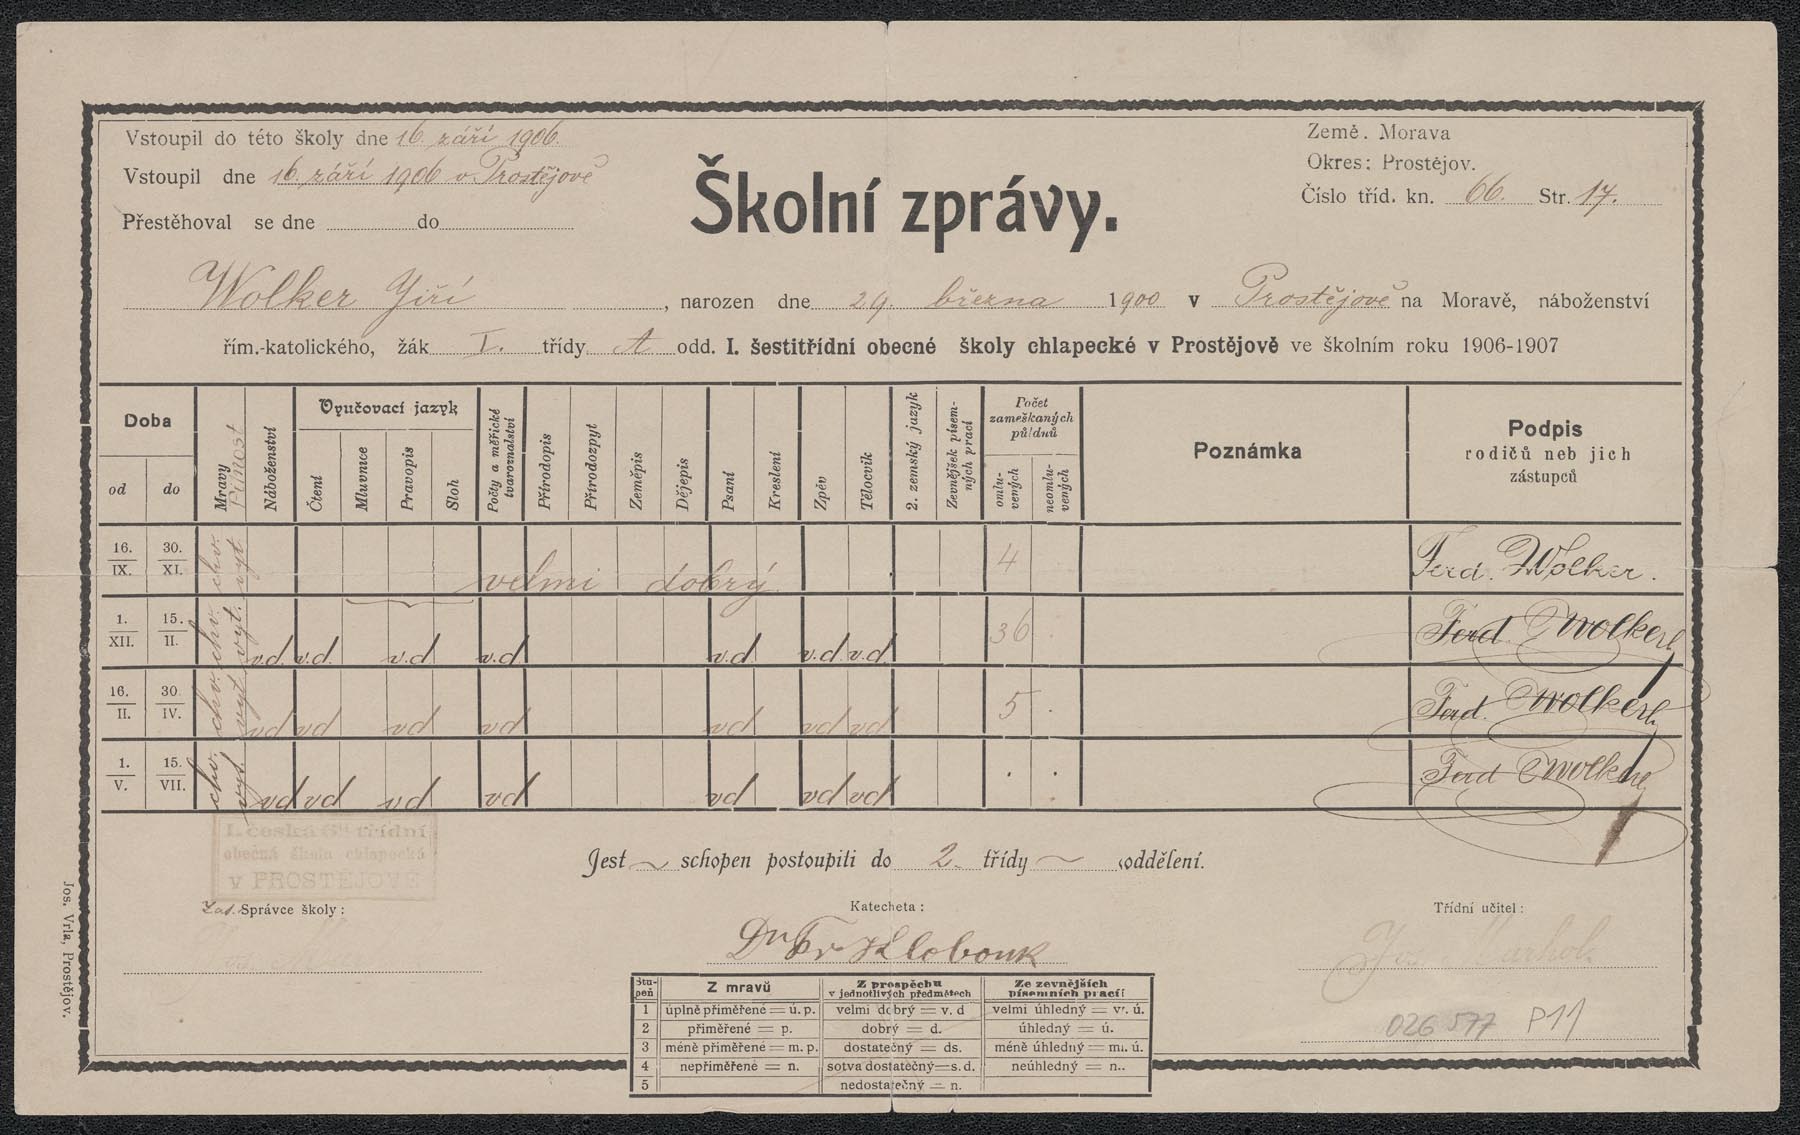 Vstoupil do této školy dne 16. září 1906.
Vstoupil dne 16. září 1906 v Prostějově
Přestěhoval se dne do
Školní zprávy.
Země. Morava
Okres: Prostějov.
Číslo tříd. kn. 66. Str. 17.
Wolker Jiří, narozen dne 29. března 1900 v Prostějově na Moravě, náboženství
řím.-katolického, žák I. třídy A odd. I. šestitřídní obecné školy chlapecké v Prostějově ve školním roku 1906-1907
Doba
od
do
Mravy
Pilnost
Náboženství
Vyučovací jazyk
Čtení
Mluvnice
Pravopis
Sloh
Počty a měřické tvaroznalství
Přírodopis
Přírodozpyt
Zeměpis
Dějepis
Psaní
Kreslení
Zpěv
Tělocvik
2. zemský jazyk
Zevnějšek písemných prací
Počet zameškaných půldnů
omluvených
neomluvených
Poznámka
Podpis
rodičů neb jich
zástupců
16. IX. 30. XI. chv. vyt. velmi dobrý 4 Ferd. Wolker.
1. XII. 15. II. chv. vyt. v.d. v.d. v.d v.d v.d v.d v.d 36 Ferd. Wolker
16. II. 30. IV. chv. vyt. vd vd vd vd vd vd vd 5 . Ferd. Wolker
1. V. 15. VII. chv. vyt. vd vd vd vd vd vd vd . . Ferd Wolker
I. česká 6ti třídní
obecná škola chlapecká
v PROSTĚJOVĚ
Jest ~ schopen postoupiti do 2. třídy ~ oddělení.
Zat. Správce školy:
Katecheta:
Dr Fr Klobouk
Třídní učitel:
Stupeň
Z mravů
Z prospěchu
v jednotlivých předmětech
Ze zevnějších
písemních prací:
1 úplně přiměřené = ú. p. velmi dobrý = v. d velmi úhledný = v. ú.
2 přiměřené = p. dobrý = d. úhledný = ú.
3 méně přiměřené = m. p. dostatečný = ds. méně úhledný = m. ú.
4 nepřiměřené = n. sotva dostatečný = s. d. neúhledný = n.
5 nedostatečný = n.
026 577 P11
Jos. Vrla, Prostějov.